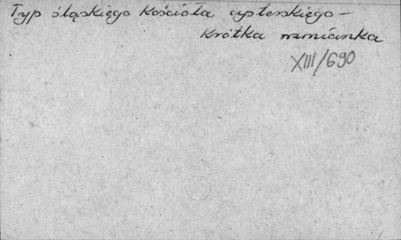 Typ śląskiego Kościoła cysterskiego –
Krótka wzmianka
XIII/690